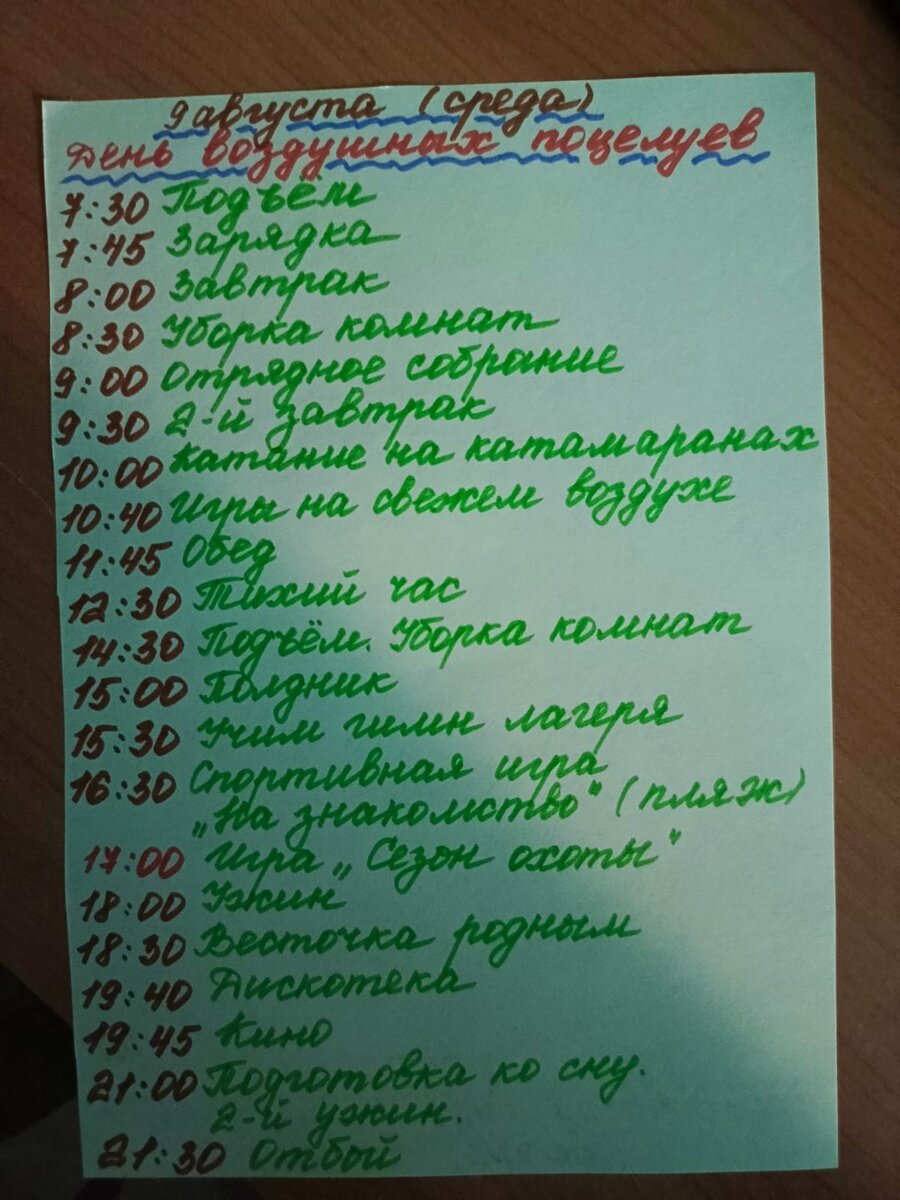 9 августа (среда)
День воздушных поцелуев
7:30 Подъём
7:45 Зарядка
8:00 Завтрак
8:30 Уборка комнат
9:00 Отрядное собрание
9:30 2-й завтрак
10:00 Катание на катамаранах
10:40 Игры на свежем воздухе
11:45 Обед
12:30 Тихий час
14:30 Подъём. Уборка комнат
15:00 Полдник
15:30 Учим гимн лагеря
16:30 Спортивная игра
„На знакомство" (пляж)
17:00 Игра „Сезон охоты"
18:00 Ужин
18:30 Весточка родным
19:40 Дискотека
19:45 Кино
21:00 Подготовка ко сну.
2-й ужин.
21:30 Отбой